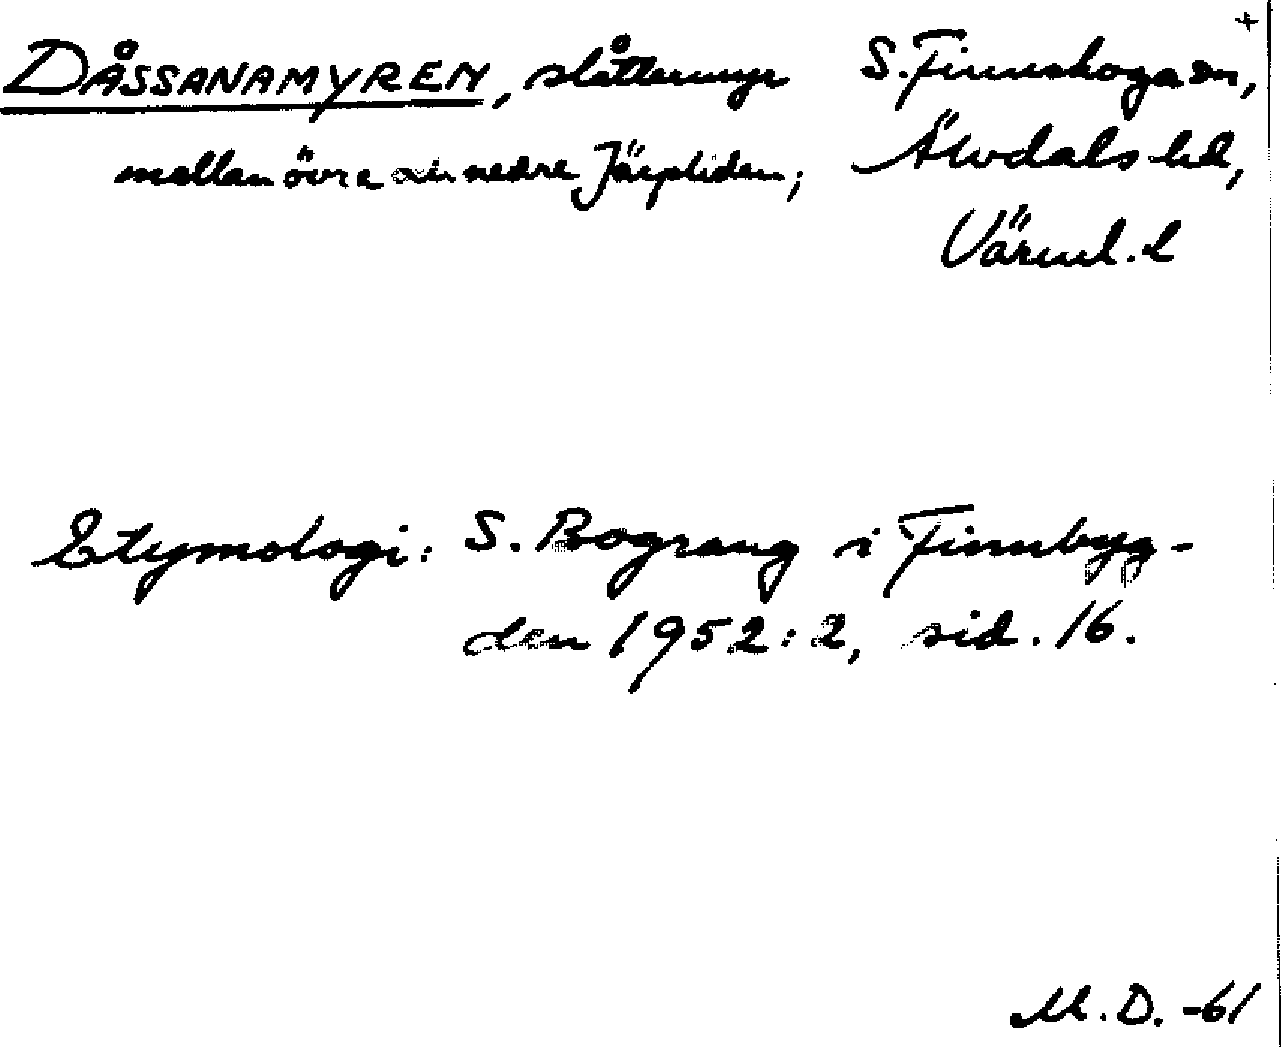 DÅSSANAMYREN, slåttermyr S. Finnskoga sn, +
mellan övre och nedre Järpliden; Älvdals hd,
Värml. l
Etymologi: S. Bograng i Finnbyg-
den 1952:2, sid. 16.
M. D. -61